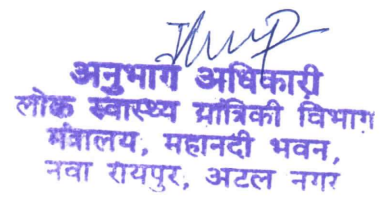 अनुभाग अधिकारी
लोक स्वास्थ्य यांत्रिकी विभाग
मंत्रालय, महानदी भवन,
नवा रायपुर, अटल नगर